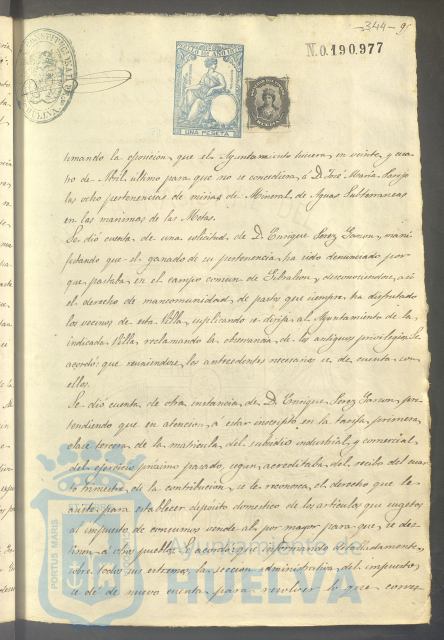 344-9
N.0.190.977
SELLO DE AÑO
UNA PESETA
timando la oposicion que el Ayuntamiento hiciera en veinte y cua-
tro de Abril último para que no se concediera á D. José Maria
las ocho pertenencias de minas de Mineral de Aguas Subterraneas
en las marismas de las Metas.
Se dió cuenta de una solicitud de D. Enrique Perez Garzon, mani-
festando que el ganado de su pertenencia ha sido denunciado por-
que pastaba en el campo comun de Gibraleon, desconociendose asi
el derecho de mancomunidad de pastos que siempre ha disfrutado
los vecinos de esta Villa, suplicando se dirija al Ayuntamiento de la
indicada Villa, reclamando la observancia de los antiguos privilegios. Se
acordó que reuniendose los antecedentes necesarios se de cuenta con
ellos.
Se dió cuenta de otra instancia de D. Enrique Perez Garzon, pre-
tendiendo que en atencion á estar inscripto en la tarifa primera,
clase tercera de la matricula del subsidio industrial y comercial
del ejercicio proximo pasado, segun acreditaba del recibo del cuar-
to trimestre de la contribucion, se le reconozca el derecho que le
asiste para establecer deposito domestico de los articulos que sugetos
al impuesto de consumos vende al por mayor para que se des-
tinen á otros pueblos. Se acordó que informando detalladamente
sobre todos sus estremos la seccion administrativa del impuesto,
se dé de nuevo cuenta para resolver lo que conven-
PORTUS MARIS
Ayuntamiento de
HUELVA